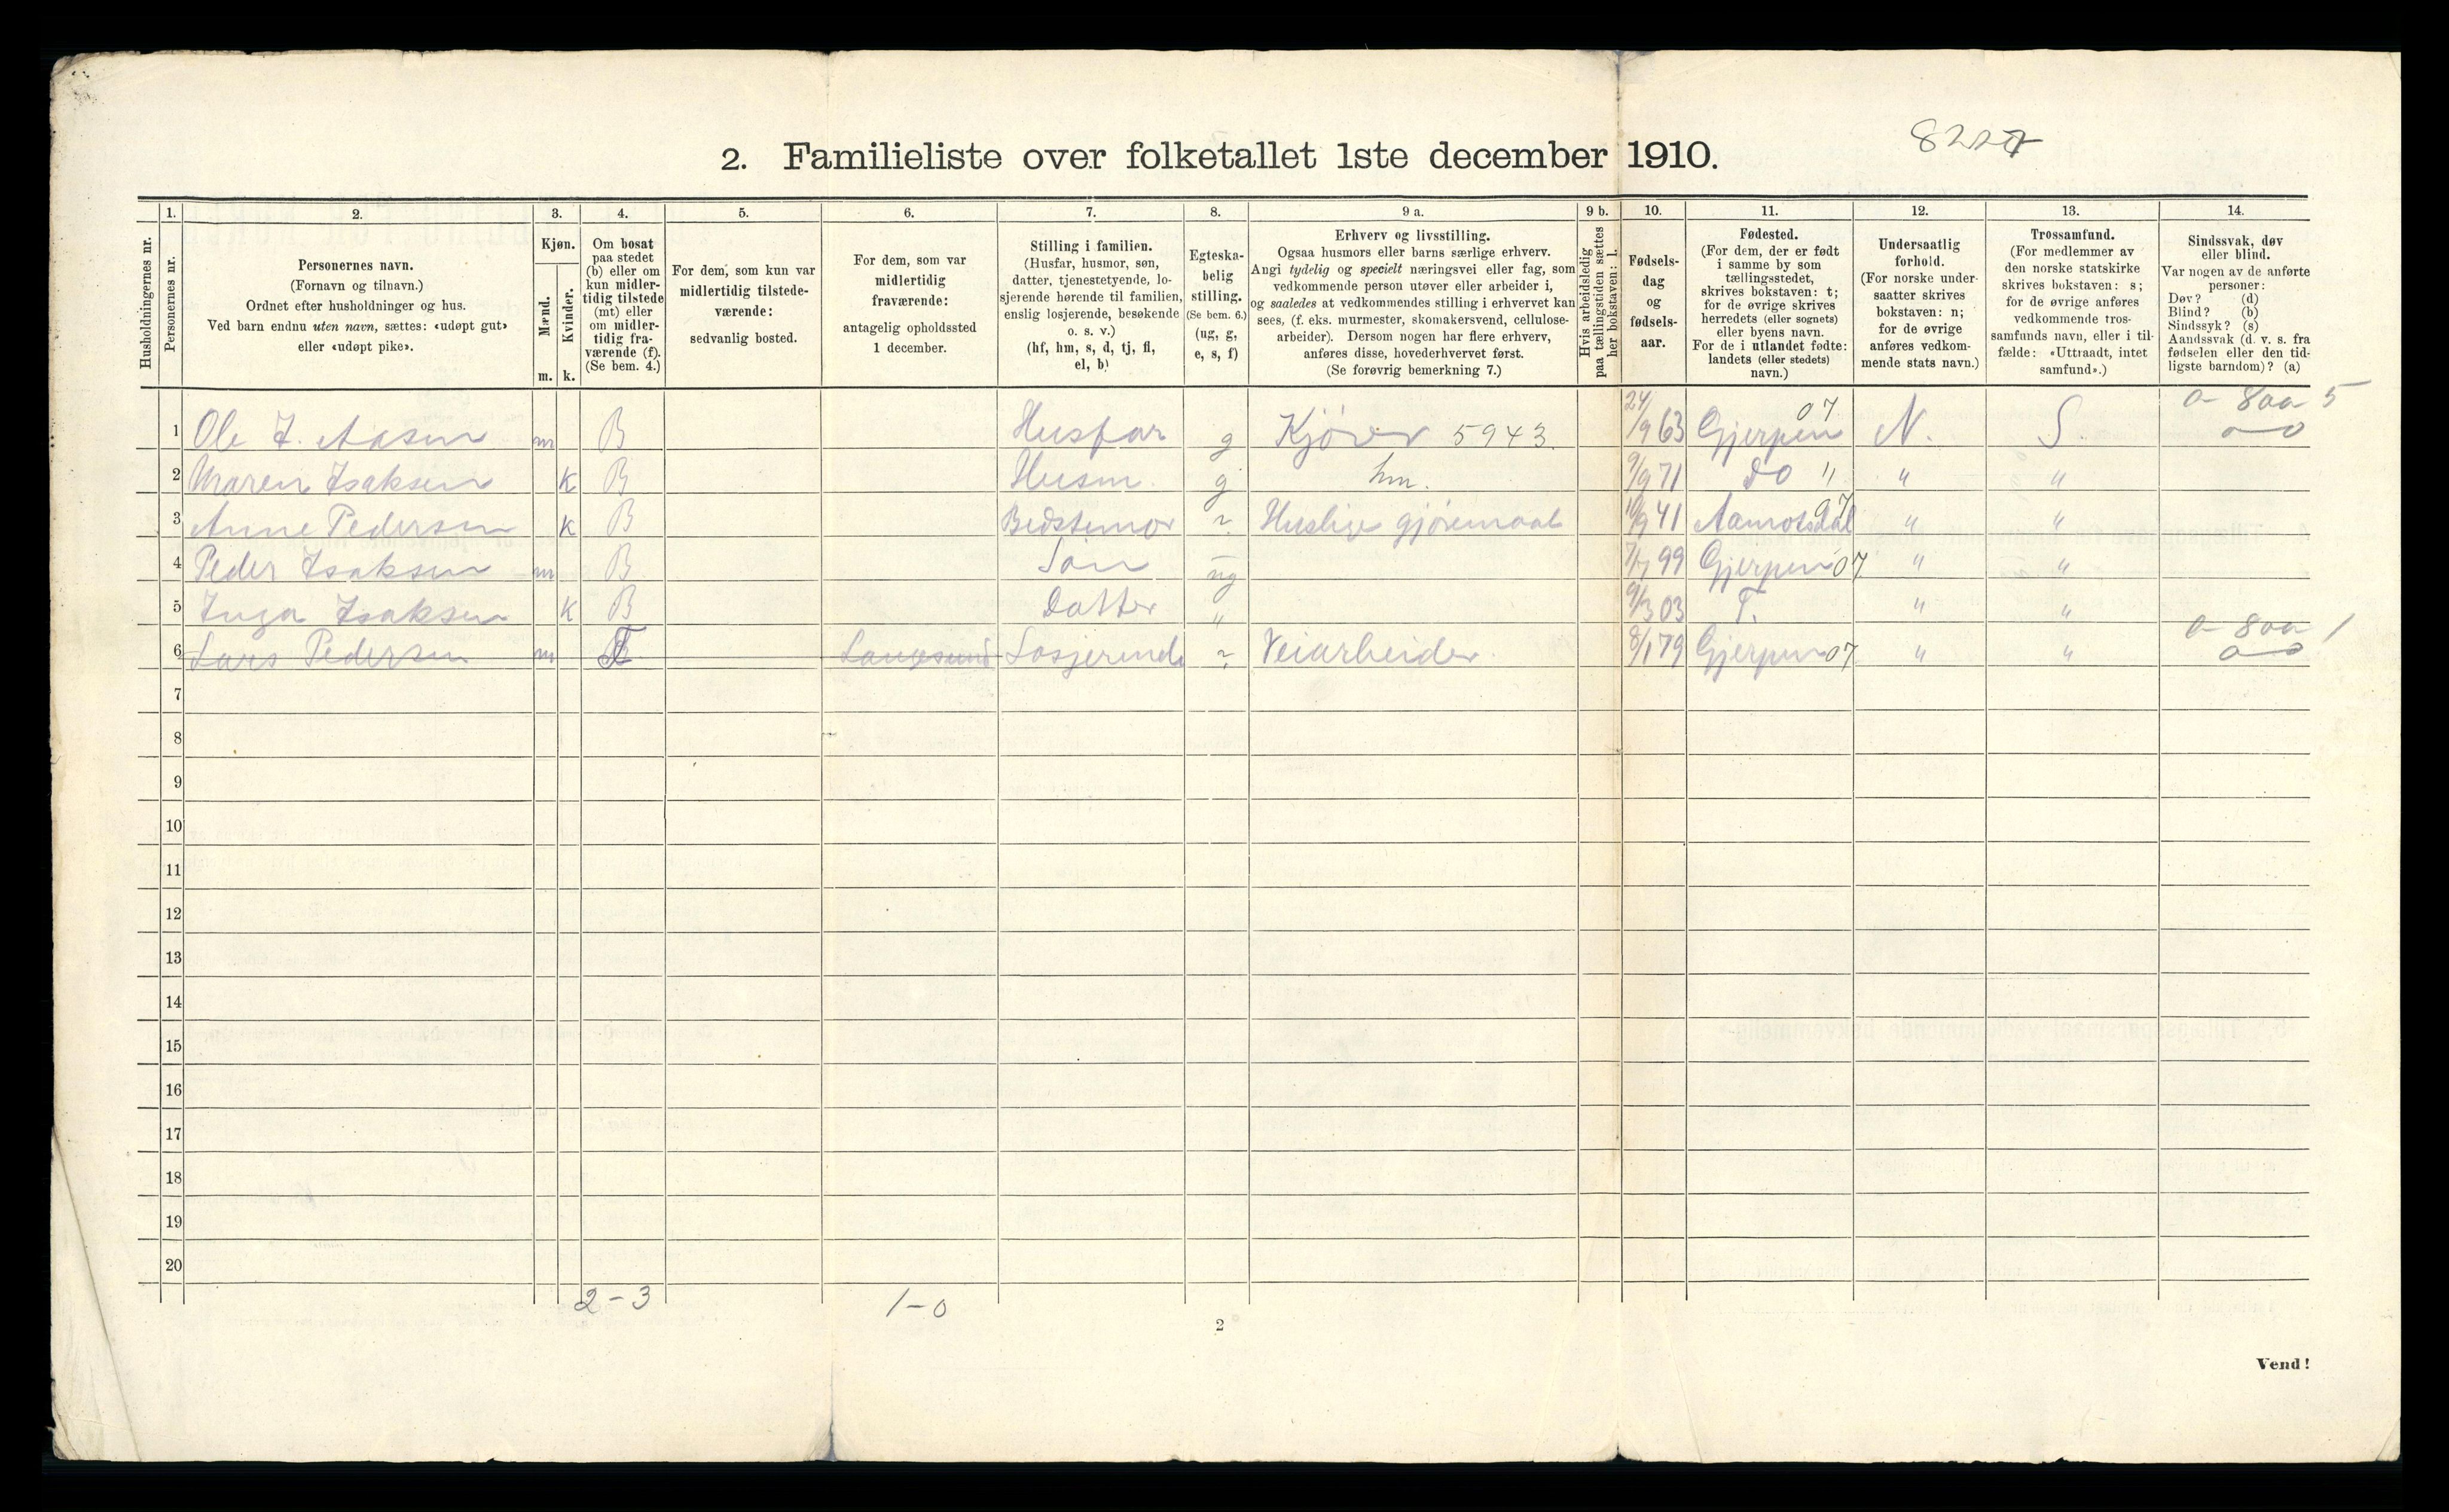 8227
2. Familieliste over folketallet 1ste december 1910.
Husholdningernes nr.
1. Personernes nr.
2. Personernes navn.
(Fornavn og tilnavn.)
Ordnet efter husholdninger og hus.
Ved barn endnu uten navn, sættes: «udøpt gut»
eller «udøpt pike».
3. Kjøn.
Mænd. m.
Kvinder. k.
4. Om bosat
paa stedet
(b) eller om
kun midler-
tidig tilstede
(mt) eller
om midler-
tidig fra-
værende (f).
(Se bem. 4.)
5. For dem, som kun var
midlertidig tilstede-
værende:
sedvanlig bosted.
6. For dem, som var
midlertidig
fraværende:
antagelig opholdssted
1 december.
7. Stilling i familien.
(Husfar, husmor, søn,
datter, tjenestetyende, lo-
sjerende hørende til familien,
enslig losjerende, besøkende
o. s. v.)
(hf, hm, s, d, tj, fl,
el, b)
8. Egteska-
belig
stilling.
(Se bem. 6.)
(ug, g,
e, s, f)
9 a. Erhverv og livsstilling.
Ogsaa husmors eller barns særlige erhverv.
Angi tydelig og specielt næringsvei eller fag, som
vedkommende person utøver eller arbeider i,
og saaledes at vedkommendes stilling i erhvervet kan
sees, (f. eks. murmester, skomakersvend, cellulose-
arbeider). Dersom nogen har flere erhverv,
anføres disse, hovederhvervet først.
(Se forøvrig bemerkning 7.)
9 b. Hvis arbeidsledig
paa tællingstiden sættes
her bokstaven: l.
10. Fødsels-
dag
og
fødsels-
aar.
11. Fødested.
(For dem, der er født
i samme by som
tællingsstedet,
skrives bokstaven: t;
for de øvrige skrives
herredets (eller sognets)
eller byens navn.
For de i utlandet fødte:
landets (eller stedets)
navn.)
12. Undersaatlig
forhold.
(For norske under-
saatter skrives
bokstaven: n;
for de øvrige
anføres vedkom-
mende stats navn.)
13. Trossamfund.
(For medlemmer av
den norske statskirke
skrives bokstaven: s;
for de øvrige anføres
vedkommende tros-
samfunds navn, eller i til-
fælde: «Uttraadt, intet
samfund».)
14. Sindssvak, døv
eller blind.
Var nogen av de anførte
personer:
Døv? (d)
Blind? (b)
Sindssyk? (s)
Aandssvak (d. v. s. fra
fødselen eller den tid-
ligste barndom)? (a)
1 Ole I. Aasen m B Husfar g Kjører 5943 24/9 63 Gjerpen 07 N. S.
2 Maren Isaksen K B Husm. g hm. 9/9 71 Do " " "
3 Anne Pedersen K B Bedstemor Huslige gjøremaal 10/9 41 " "
4 Peder Isaksen m B Søn ug 7/7 99 Gjerpen 07 " "
5 Inga Isaksen K B Datter " 9/3 03 T. " "
6 Lars Pedersen m Langesund Losjerende Veiarbeider 8/1 79 Gjerpen 07 " "
7
8
9
10
11
12
13
14
15
16
17
18
19
20
2-3 1-0
2
Vend!